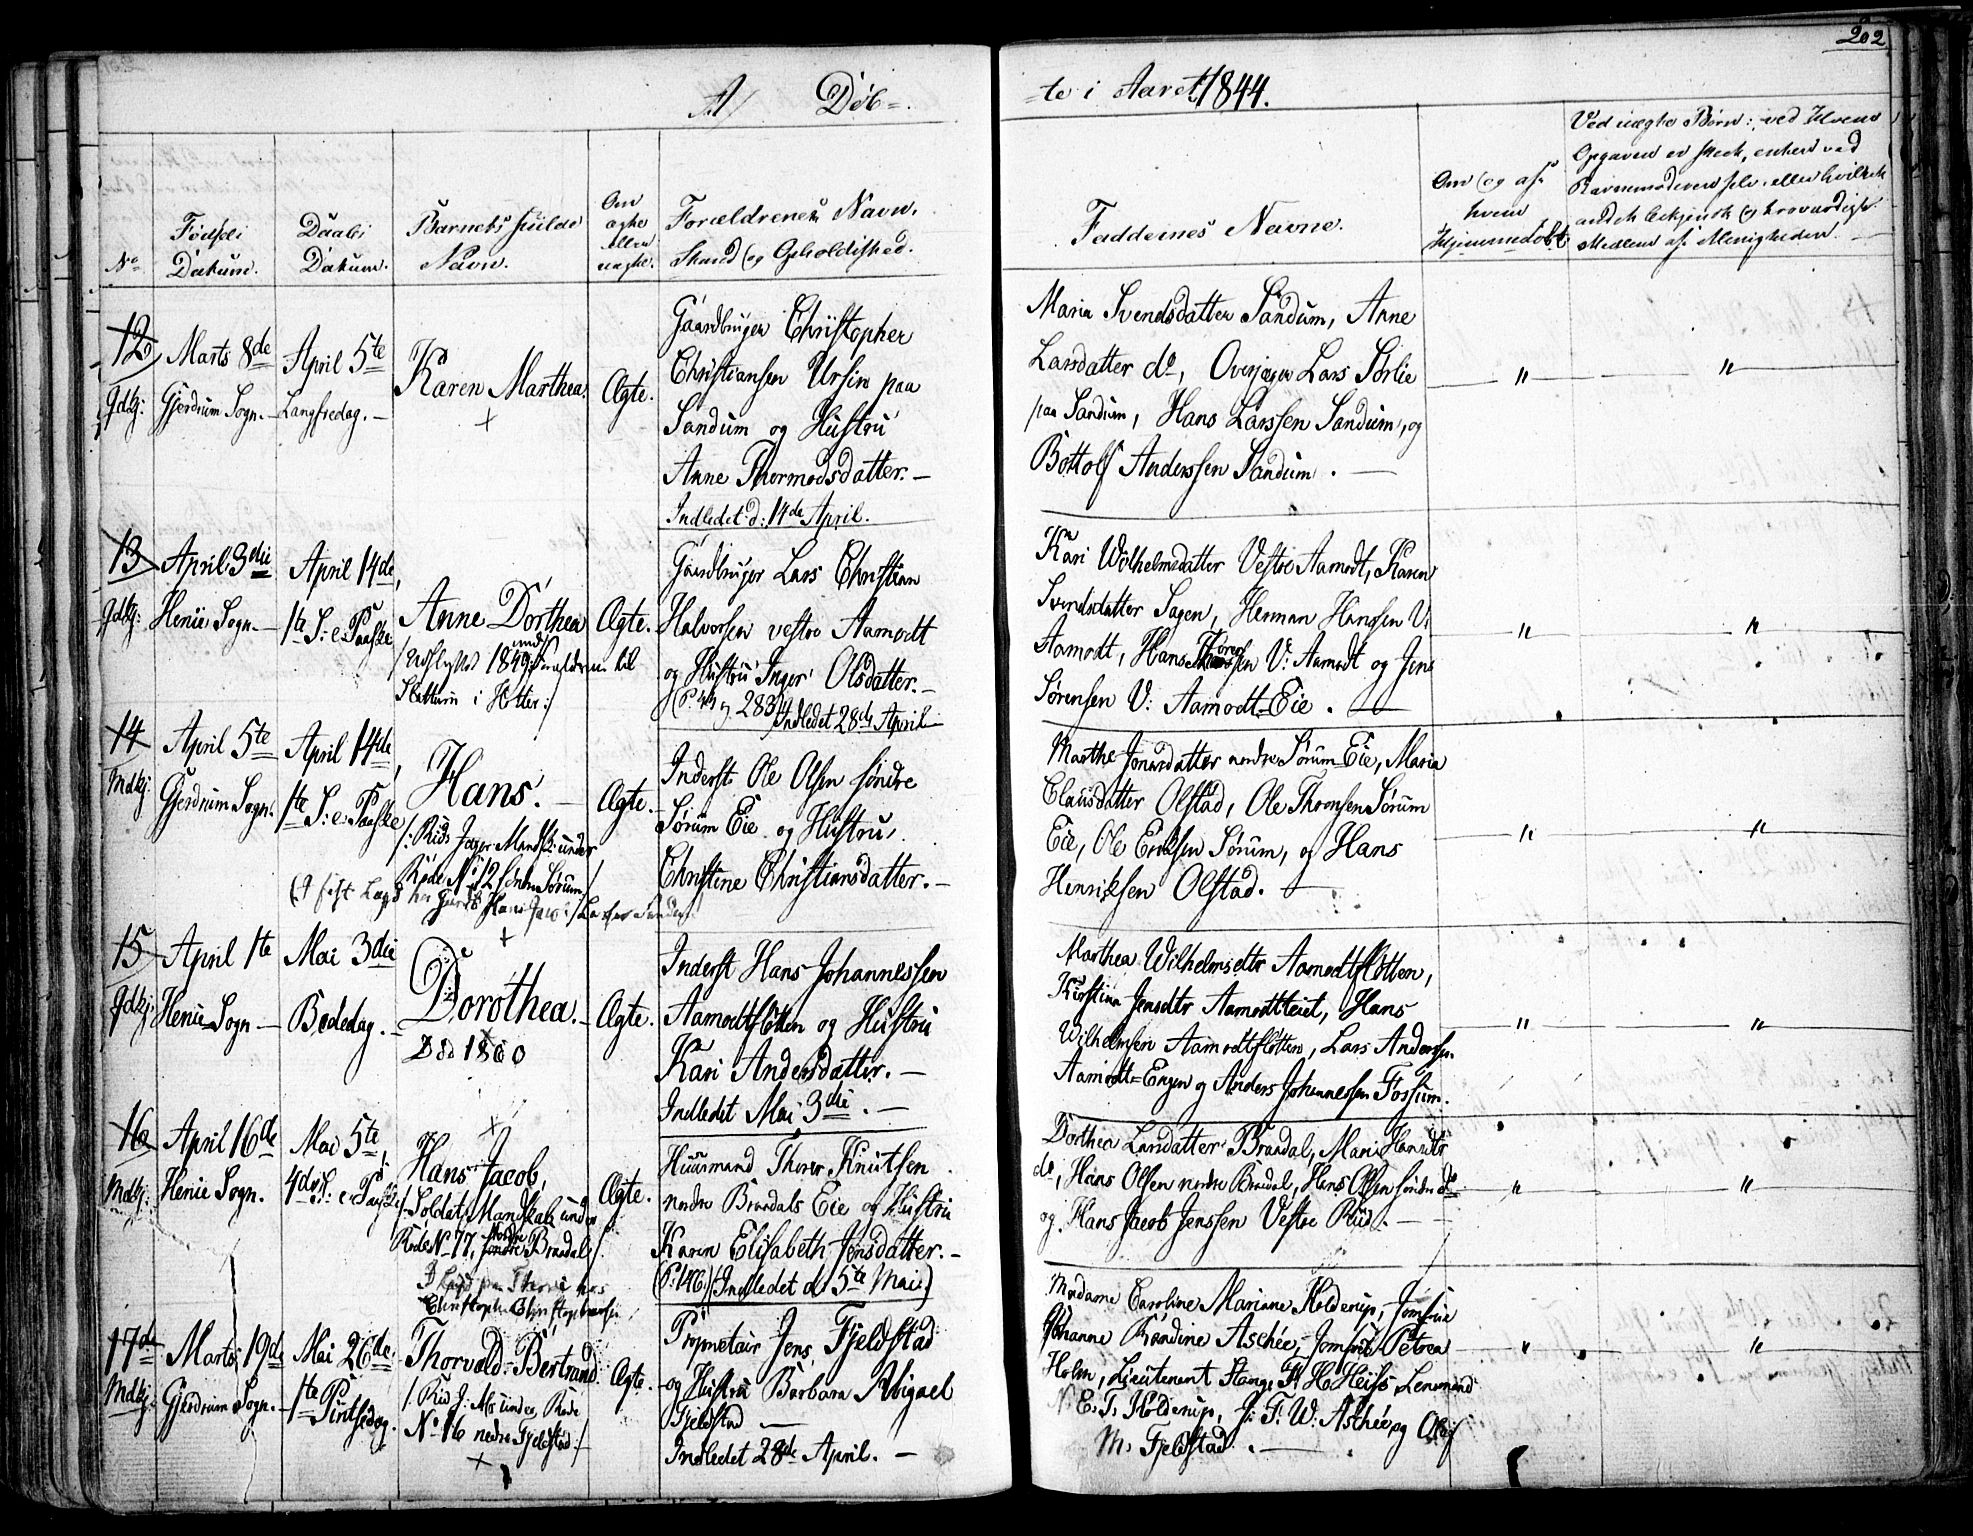 202
A/ Döb=
=te i Aaret 1844.
No
Fødsels
Datum.
Daabs
Datum.
Barnets fulde
Navn.
Om
ægte
eller
uægte.
Forældrenes Navn,
Stand og Opholdssted.
Faddernes Navne.
Om (og af
hvem
hjemmedøbt
Ved uægte Børn: ved Hvem
Opgaven er skeet, enten ved
Barnemoderen selv, eller hvilket
andet bekjendt og troværdigt
Medlem af Menigheden.
12
Gdkj:
Marts 8de
Gjerdrum Sogn.
April 5te
Langfredag.
Karen Marthea.
+
Ægte.
Gaardbruger Christopher
Christiansen Ursin paa
Sandum og Hustru
Anne Thormodsdatter.
Indledet d: 14de April.
Maria Svendsdatter Sandum, Anne
Larsdatter do, Overjæger Lars Sørlie
paa Sandum, Hans Larssen Sandum, og
Bottolf Anderssen Sandum.
" "
13
Gdkj:
April 3die
Henie Sogn.
April 14de,
1te S: e: Paaske
Anne Dorthea
/ Udflyttet 1849 med Forældrene til
Slattum i Hitter:/
Ægte.
Gaardbruger Lars Christian
Halvorsen vestre Aamodt
og Hustru Inger Olsdatter.
283
Indledet 28de April
Kari Wilhelmsdatter Vestre Aamodt, Karen
Svendsdatter Sagen, Herman Hanssen V:
Aamodt, Hans Thoresen V: Aamodt og Jens
Sørensen V: Aamodt=Eie.
" "
14
Mdkj:
April 5te
Gjerdrum Sogn.
April 14de,
1te S: e: Paaske
Hans.
/: Kids Jæger Mandsk: under
Rode No 12 søndre Sørum /
(I fast Lægd hos
+
Ægte.
Inderst Ole Olsen søndre
Sørum Eie og Hustru,
Christine Christiansdatter.
Marthe Jonasdatter nordre Sørum Eie, Maria
Clausdatter Olstad, Ole Thronsen Sørum
Eie, Ole Eriksen Sørum, og Hans
Henriksen Olstad.
" "
15
Gdkj:
April 1te
Henie Sogn
Mai 3die
Bededag.
Dorothea.
Død 1860
Ægte.
Inderst Hans Johannessen
Aamodtslötten og Hustru
Kari Andersdatter.
Indledet Mai 3die.
Marthea Wilhelmsdtr Aamodtslötten,
Kirstina Jensdtr Aamodteiet, Hans
Wilhelmsen Aamodtslötten, Lars Andersen
Aamodt=Engen og Anders Johannessen Fossum.
" "
16
Mdkj:
April 16de
Henie Sogn.
Mai 5te,
4de S: e: Paaske
+
Hans Jacob,
/: Soldat, Mandskab under
Rode No 77, nordre Braadal /
Ægte.
Huusmand Thorer Knutsen
nordre Braadals Eie og Hustru
Karen Elisabeth Jensdatter.
(P: 146) (Indledet d: 5te Mai)
Dorthea Larsdatter Braadal, Mari Hansdtr
do, Hans Olsen nordre Braadal, Hans Olsen søndre do
og Hans Jacob Jenssen Vestre Ruud.
" "
17de
Mdkj:
Marts 19de
Gjerdrum Sogn.
Mai 26de.
1te Pintsedag.
Thorvald=Bertrand.
No 16 nedre Fjeldstad:/
+
Ægte.
Proprietair Jens Fjeldstad
og Hustru Barbara Abigael
Fjeldstad
Indledet 28de April.
Madame Caroline Mariane Kolderup, Jomfrue
Johanne Bendine Aschée, Jomfrue Petrea
Holm, Lieutenant Stang, H. Heiss, Lensmand
N. E. T. Kolderup, J: F. W. Aschée og Olaf
M. Fjeldstad.
" "